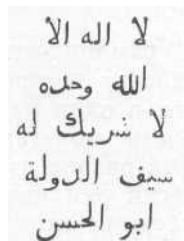 لا اله الا
الله وحده
لا شريك له
سيف الدولة
ابو الحسن